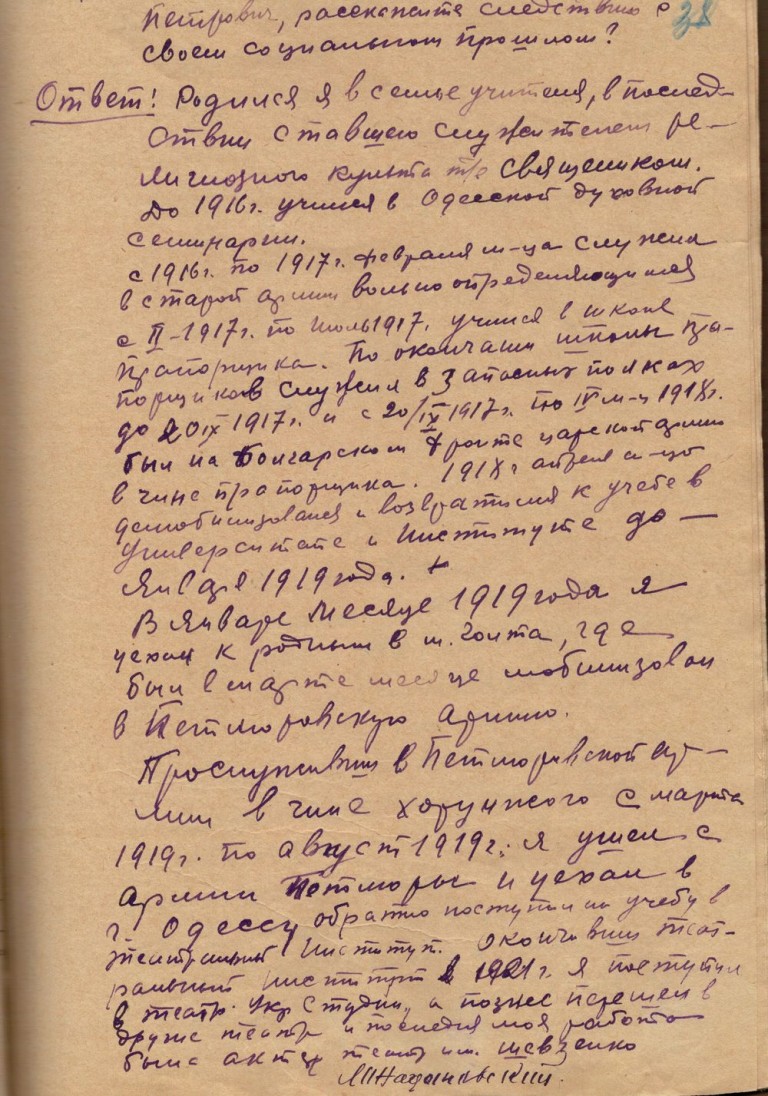 38
Петрович, расскажите следствию о
своем социальном прошлом?
Ответ: Родился я в семье учителя, в послед-
ствии ставшего служителем ре-
лигиозного культа т/е священником.
До 1916 г. учился в Одесской духовной
семинарии.
с 1916 г. по 1917 г. февраля м-ца служил
в старой армии вольноопределяющимся
с II-1917 г. по июль 1917, учился в школе
прапорщика. По окончании школы пра-
порщиков служил в запасных полках
до 20 IX 1917 г. и с 20/IX 1917 г. по IV м-ц 1918 г.
был на Болгарском фронте царской армии
в чине прапорщика. 1918 г апреля м-це
демобилизовался и возвратился к учебе в
университете и институте до
января 1919 года. +
В январе месяце 1919 года я
уехал к родным в м. Голта, где
был в марте месяце мобилизован
в Петлюровскую армию.
Прослуживши в Петлюровской ар-
мии в чине хорунжого с марта
1919 г. по август 1919 г. я ушел с
армии Петлюры и уехал в
г. Одессу обратно поступил на учебу в
театральный институт. окончивши теат-
ральный институт в 1921 г. я поступил
в театр. Укр. Студии, а позже перешел в
другие театр и последняя моя работа
была актер театр им. Шевченко